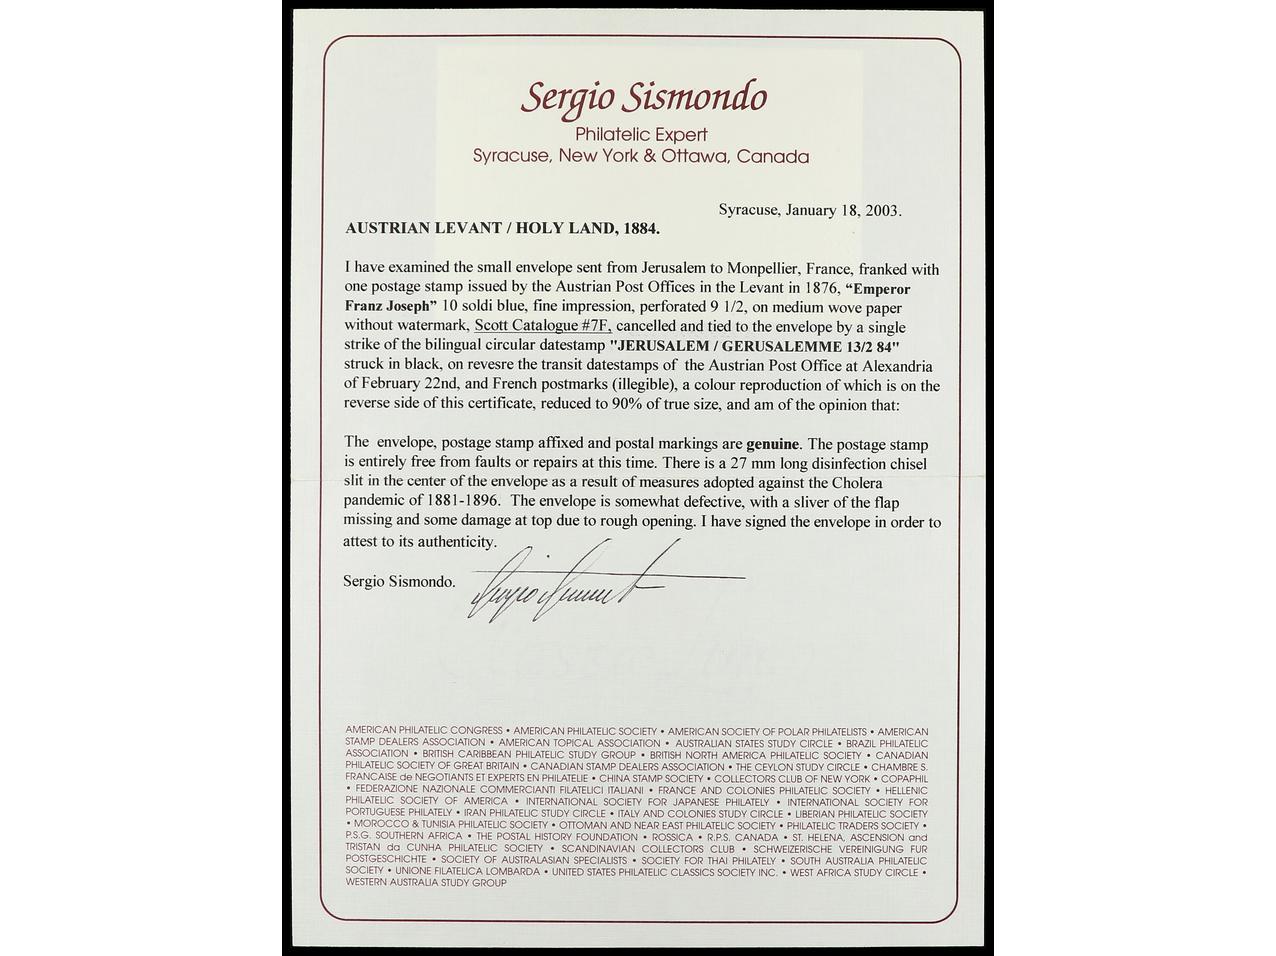 Sergio Sismondo
Philatelic Expert
Syracuse, New York & Ottawa, Canada
Syracuse, January 18, 2003.
AUSTRIAN LEVANT / HOLY LAND, 1884.
I have examined the small envelope sent from Jerusalem to Monpellier, France, franked with
one postage stamp issued by the Austrian Post Offices in the Levant in 1876, “Emperor
Franz Joseph” 10 soldi blue, fine impression, perforated 9 1/2, on medium wove paper
without watermark, Scott Catalogue #7F, cancelled and tied to the envelope by a single
strike of the bilingual circular datestamp "JERUSALEM / GERUSALEMME 13/2 84"
struck in black, on revesre the transit datestamps of the Austrian Post Office at Alexandria
of February 22nd, and French postmarks (illegible), a colour reproduction of which is on the
reverse side of this certificate, reduced to 90% of true size, and am of the opinion that:
The envelope, postage stamp affixed and postal markings are genuine. The postage stamp
is entirely free from faults or repairs at this time. There is a 27 mm long disinfection chisel
slit in the center of the envelope as a result of measures adopted against the Cholera
pandemic of 1881-1896. The envelope is somewhat defective, with a sliver of the flap
missing and some damage at top due to rough opening. I have signed the envelope in order to
attest to its authenticity.
Sergio Sismondo.
AMERICAN PHILATELIC CONGRESS • AMERICAN PHILATELIC SOCIETY • AMERICAN SOCIETY OF POLAR PHILATELISTS • AMERICAN
STAMP DEALERS ASSOCIATION • AMERICAN TOPICAL ASSOCIATION • AUSTRALIAN STATES STUDY CIRCLE • BRAZIL PHILATELIC
ASSOCIATION • BRITISH CARIBBEAN PHILATELIC STUDY GROUP • BRITISH NORTH AMERICA PHILATELIC SOCIETY • CANADIAN
PHILATELIC SOCIETY OF GREAT BRITAIN • CANADIAN STAMP DEALERS ASSOCIATION • THE CEYLON STUDY CIRCLE • CHAMBRE S.
FRANCAISE de NEGOTIANTS ET EXPERTS EN PHILATELIE • CHINA STAMP SOCIETY • COLLECTORS CLUB OF NEW YORK • COPAPHIL
• FEDERAZIONE NAZIONALE COMMERCIANTI FILATELICI ITALIANI • FRANCE AND COLONIES PHILATELIC SOCIETY • HELLENIC
PHILATELIC SOCIETY OF AMERICA • INTERNATIONAL SOCIETY FOR JAPANESE PHILATELY • INTERNATIONAL SOCIETY FOR
PORTUGUESE PHILATELY • IRAN PHILATELIC STUDY CIRCLE • ITALY AND COLONIES STUDY CIRCLE • LIBERIAN PHILATELIC SOCIETY
• MOROCCO & TUNISIA PHILATELIC SOCIETY • OTTOMAN AND NEAR EAST PHILATELIC SOCIETY • PHILATELIC TRADERS SOCIETY •
P.S.G. SOUTHERN AFRICA • THE POSTAL HISTORY FOUNDATION • ROSSICA • R.P.S. CANADA • ST. HELENA, ASCENSION and
TRISTAN da CUNHA PHILATELIC SOCIETY • SCANDINAVIAN COLLECTORS CLUB • SCHWEIZERISCHE VEREINIGUNG FUR
POSTGESCHICHTE • SOCIETY OF AUSTRALASIAN SPECIALISTS • SOCIETY FOR THAI PHILATELY • SOUTH AUSTRALIA PHILATELIC
SOCIETY • UNIONE FILATELICA LOMBARDA • UNITED STATES PHILATELIC CLASSICS SOCIETY INC. • WEST AFRICA STUDY CIRCLE •
WESTERN AUSTRALIA STUDY GROUP